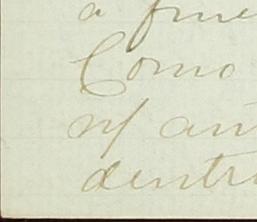 a fine
Como
n/ an
dentr